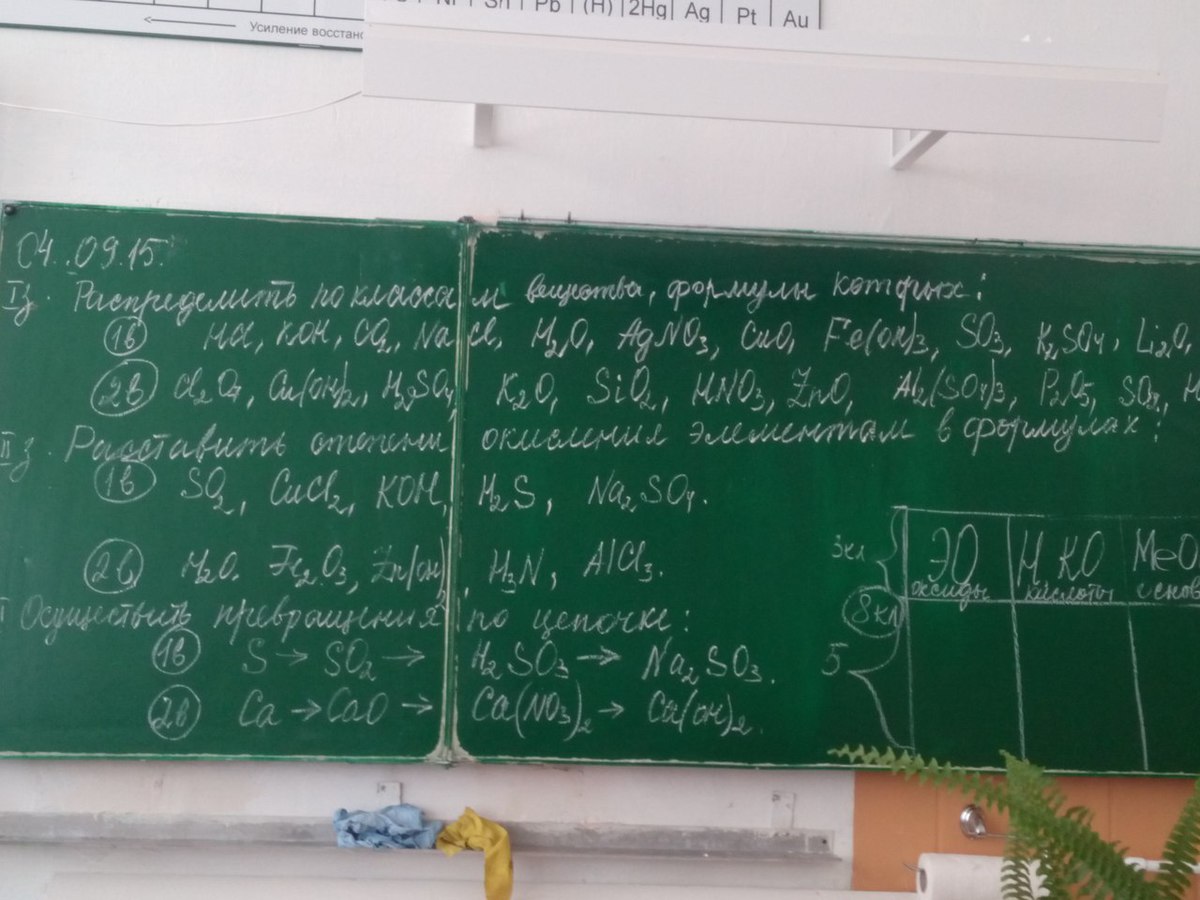 Ni Sn Pb (H) 2Hg Ag Pt Au
Усиление восста
04.09.15.
Iз. Распределить по классам вещества, формулы которых:
1в HCl, KOH, CO2, NaCl, H2O, AgNO3, CuO, Fe(OH)3, SO3, K2SO4, Li2O,
2в Cl2O7, Cu(OH)2, H2SO4, K2O, SiO2, HNO3, ZnO, Al2(SO4)3, P2O5, SO2, H
IIз. Расставить степени окисления элементам в формулах:
1в SO2, CuCl2, KOH, H2S, Na2SO4.
2в H2O. Fe2O3, Zn(OH), H3N, AlCl3.
Осуществить превращения по цепочке:
1в S → SO2 → H2SO3 → Na2SO3.
2в Ca → CaO → Ca(NO3)2 → Ca(OH)2.
3кл
8кл
5
ЭО НКО МеО
оксиды кислоты основ